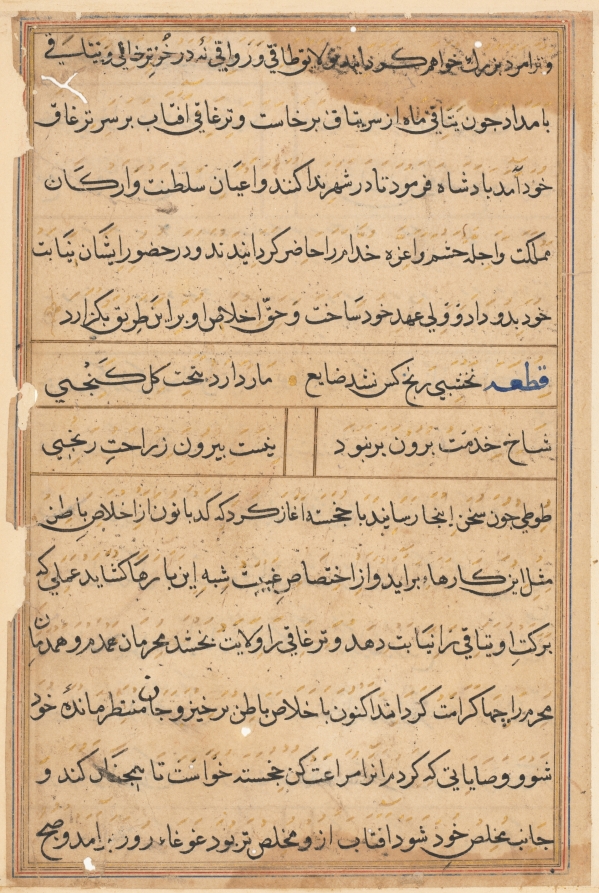 و ترا مرد بزرك خواهم كردانيد بولايت وطاقي و رواقي نه در خور تر خاقي و يتاقي
بامداد جون يتاقي ماه از سر يتاق برخاست و ترغاقي افتاب بر سر ترغاق
خود آمد بادشاه فرمود تا در شهر ندا كنند و اعيان سلطنت و اركان
مملكت و اجلهٔ حشم و اعزه خدام را حاضر كردانيدند و در حضور ايشان نيابت
خود بدو داد و ولي عهد خود ساخت و حق اخلاص او برين طريق بكزارد
قطعه نخشبي رنج كس نشد ضايع مار دارد بتحت كل كنجي
شاخ خدمت برون بر نبود نيست بيرون ز راحت رنجي
طوطي جون سخن اينجا رسانيد با خجسته آغاز كرد كه كدبانو از اخلاص باطن
مثل اين كارها برايد و از اختصاص غيبت شبه اين بارها كشايد عملي كه
بركت او يتاقي را نيابت دهد و ترغاقي را ولايت بخشد محرمان همدم و همدمان
محرم را جها كرامت كرداند اكنون باخلاص باطن برخيز و جان منتظر مانده خود
شو و وصاياتي كه كردم انرا مراعت كن خجسته خواست تا همجنان كند و
جانب مخلص خود شود افتاب ازو مخلص تر بود غوغاء روز برامد و صبح